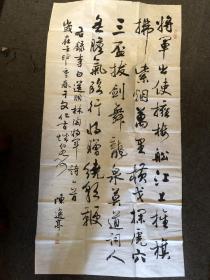 將軍出使擁樓船江上旌旗
拂紫烟萬里橫戈探虎穴
三盃拔劍舞龍泉莫道詞人
無膽氣臨行將贈繞朝鞭
右錄李白送羽林陶將軍詩一首
歲在壬申季春于文化古